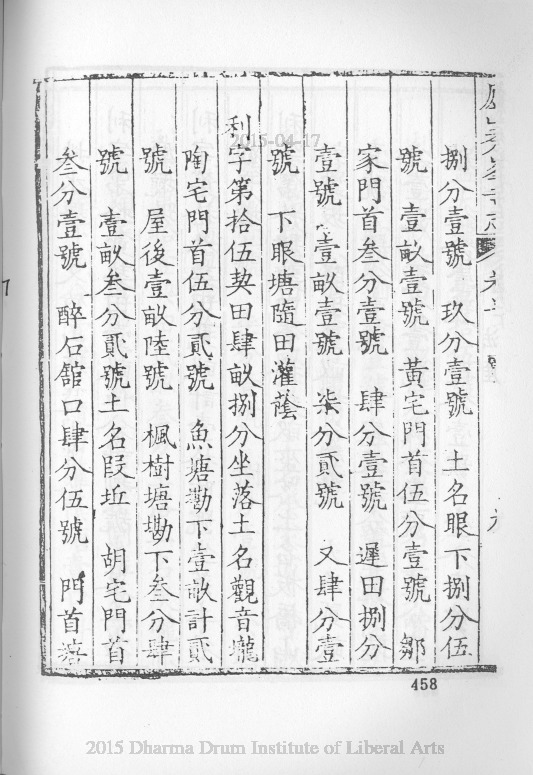 捌分壹號　玖分壹號　土名眼下捌分伍
號　壹畝壹號　黃宅門首伍分壹號　鄒
家門首叁分壹號　肆分壹號　遲田捌分
壹號　壹畝壹號　柒分貳號　又肆分壹
號　下眼塘隨田灌蔭
利字第拾伍契田肆畝捌分坐落土名觀音壠
陶宅門首伍分貳號　魚塘墈下壹畝計貳
號　屋後壹畝陸號　楓樹塘墈下叁分肆
號　壹畝叁分貳號土名段坵　胡宅門首
叁分壹號　醉石舘口肆分伍號　門首塘
458
2015-04-17
2015 Dharma Drum Institute of Liberal Arts